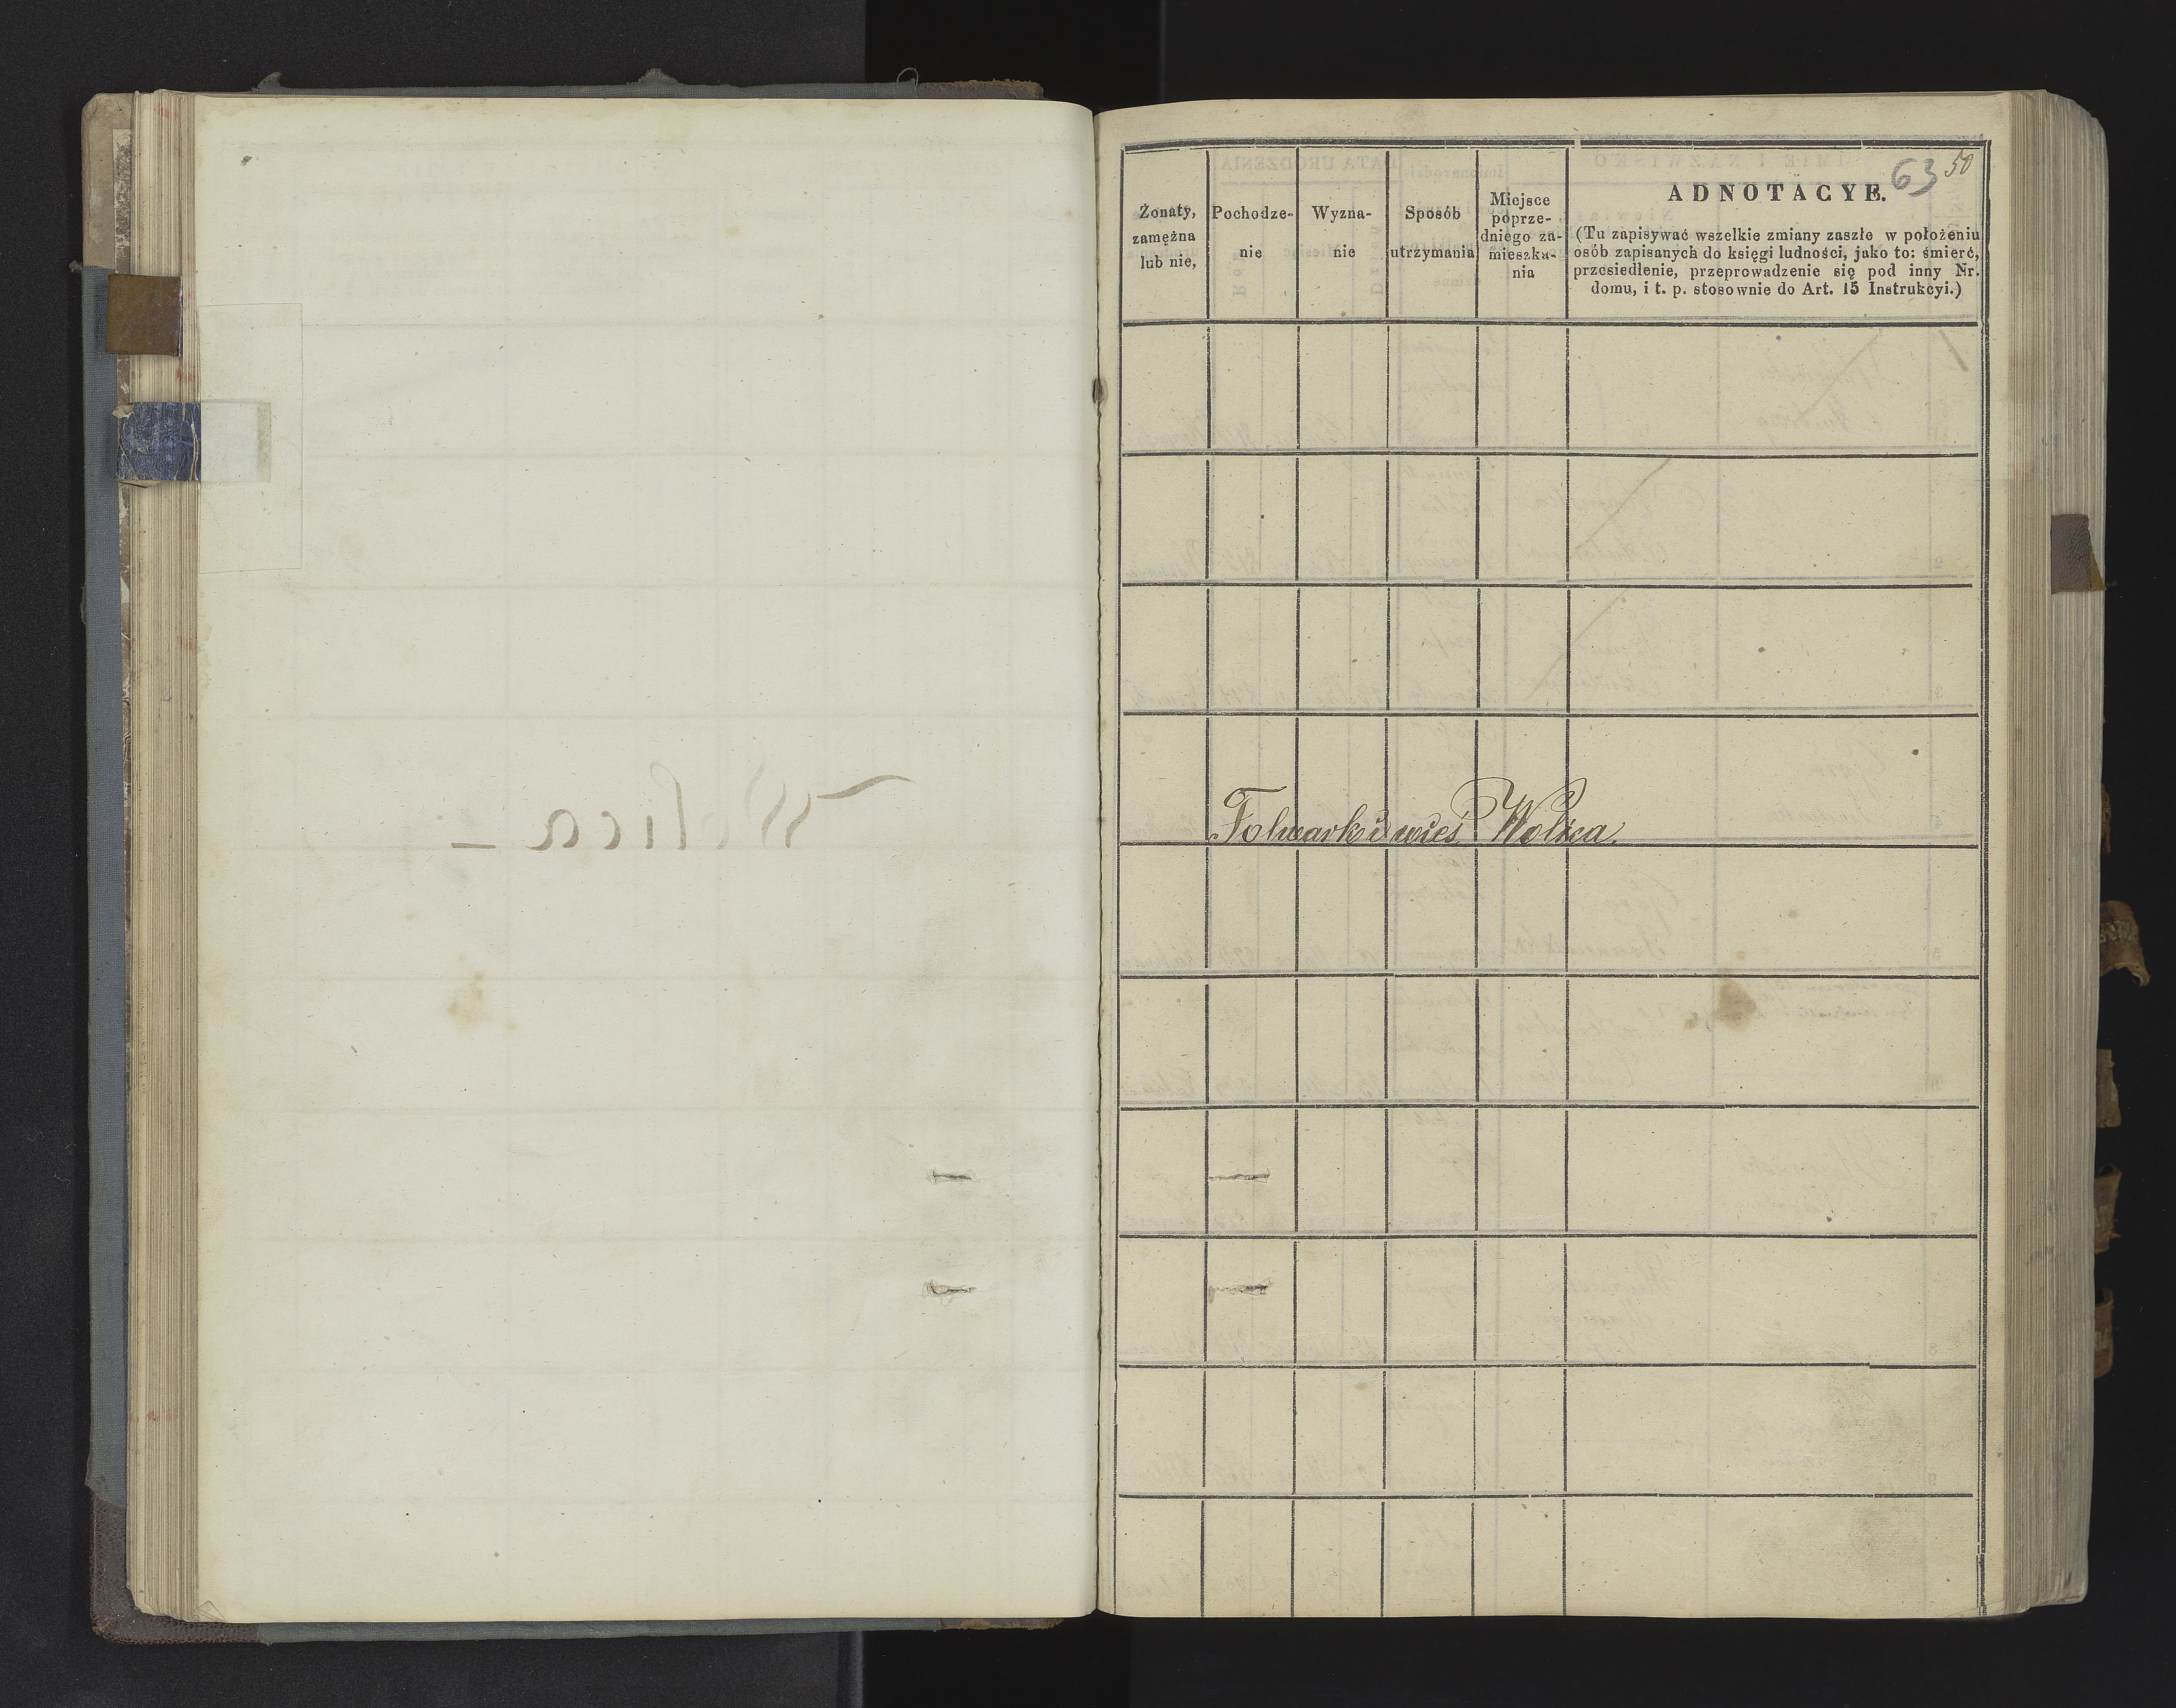 Wolica –
63 50
Żonaty,
zamężna
lub nie,
Pochodze-
nie
Wyzna-
nie
Sposób
utrzymania
Miejsce
poprze-
dniego za-
mieszka-
nia
ADNOTACYE.
(Tu zapisywać wszelkie zmiany zaszłe w położeniu
osób zapisanych do księgi ludności, jako to: śmierć,
przesiedlenie, przeprowadzenie się pod inny Nr.
domu, i t. p. stosownie do Art. 15 Instrukcyi.)
Folwark i wieś Wolica.